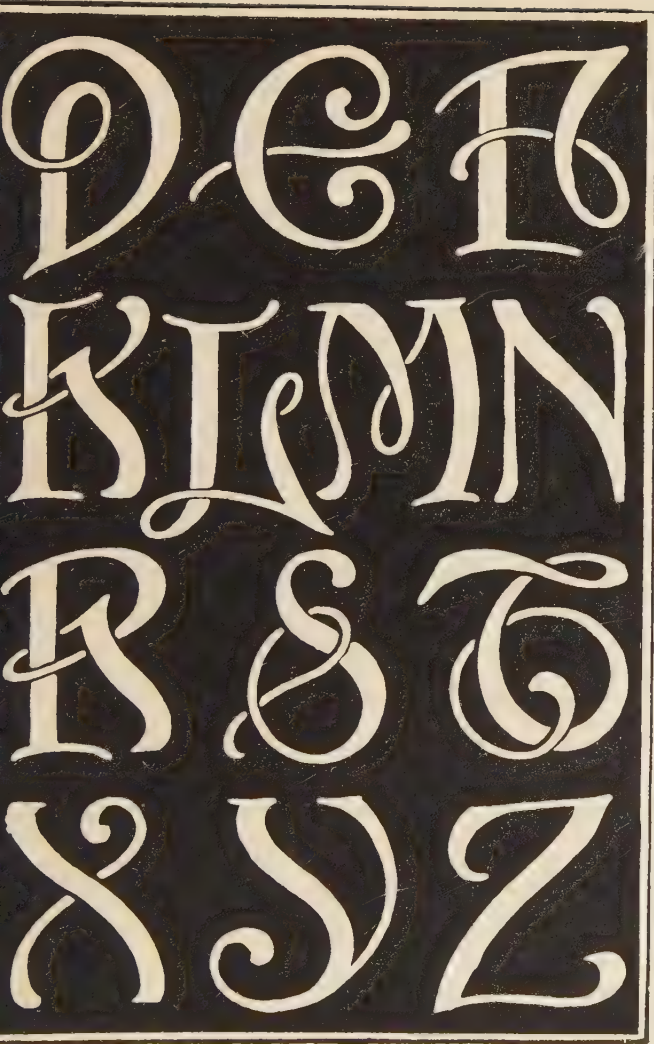 D E F
K L M N
R S T
X Y Z